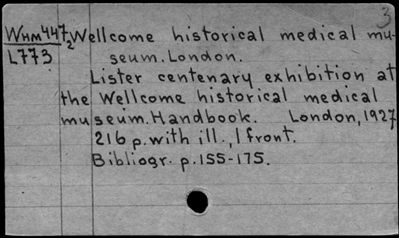 3
WHM447₂ Wellcome historical medical mu-
L773 seum. London.
Lister centenary exhibition at
the Wellcome historical medical
museum. Handbook. London, 1927
216 p. with ill., 1 front.
Bibliogr. p. 155-175.